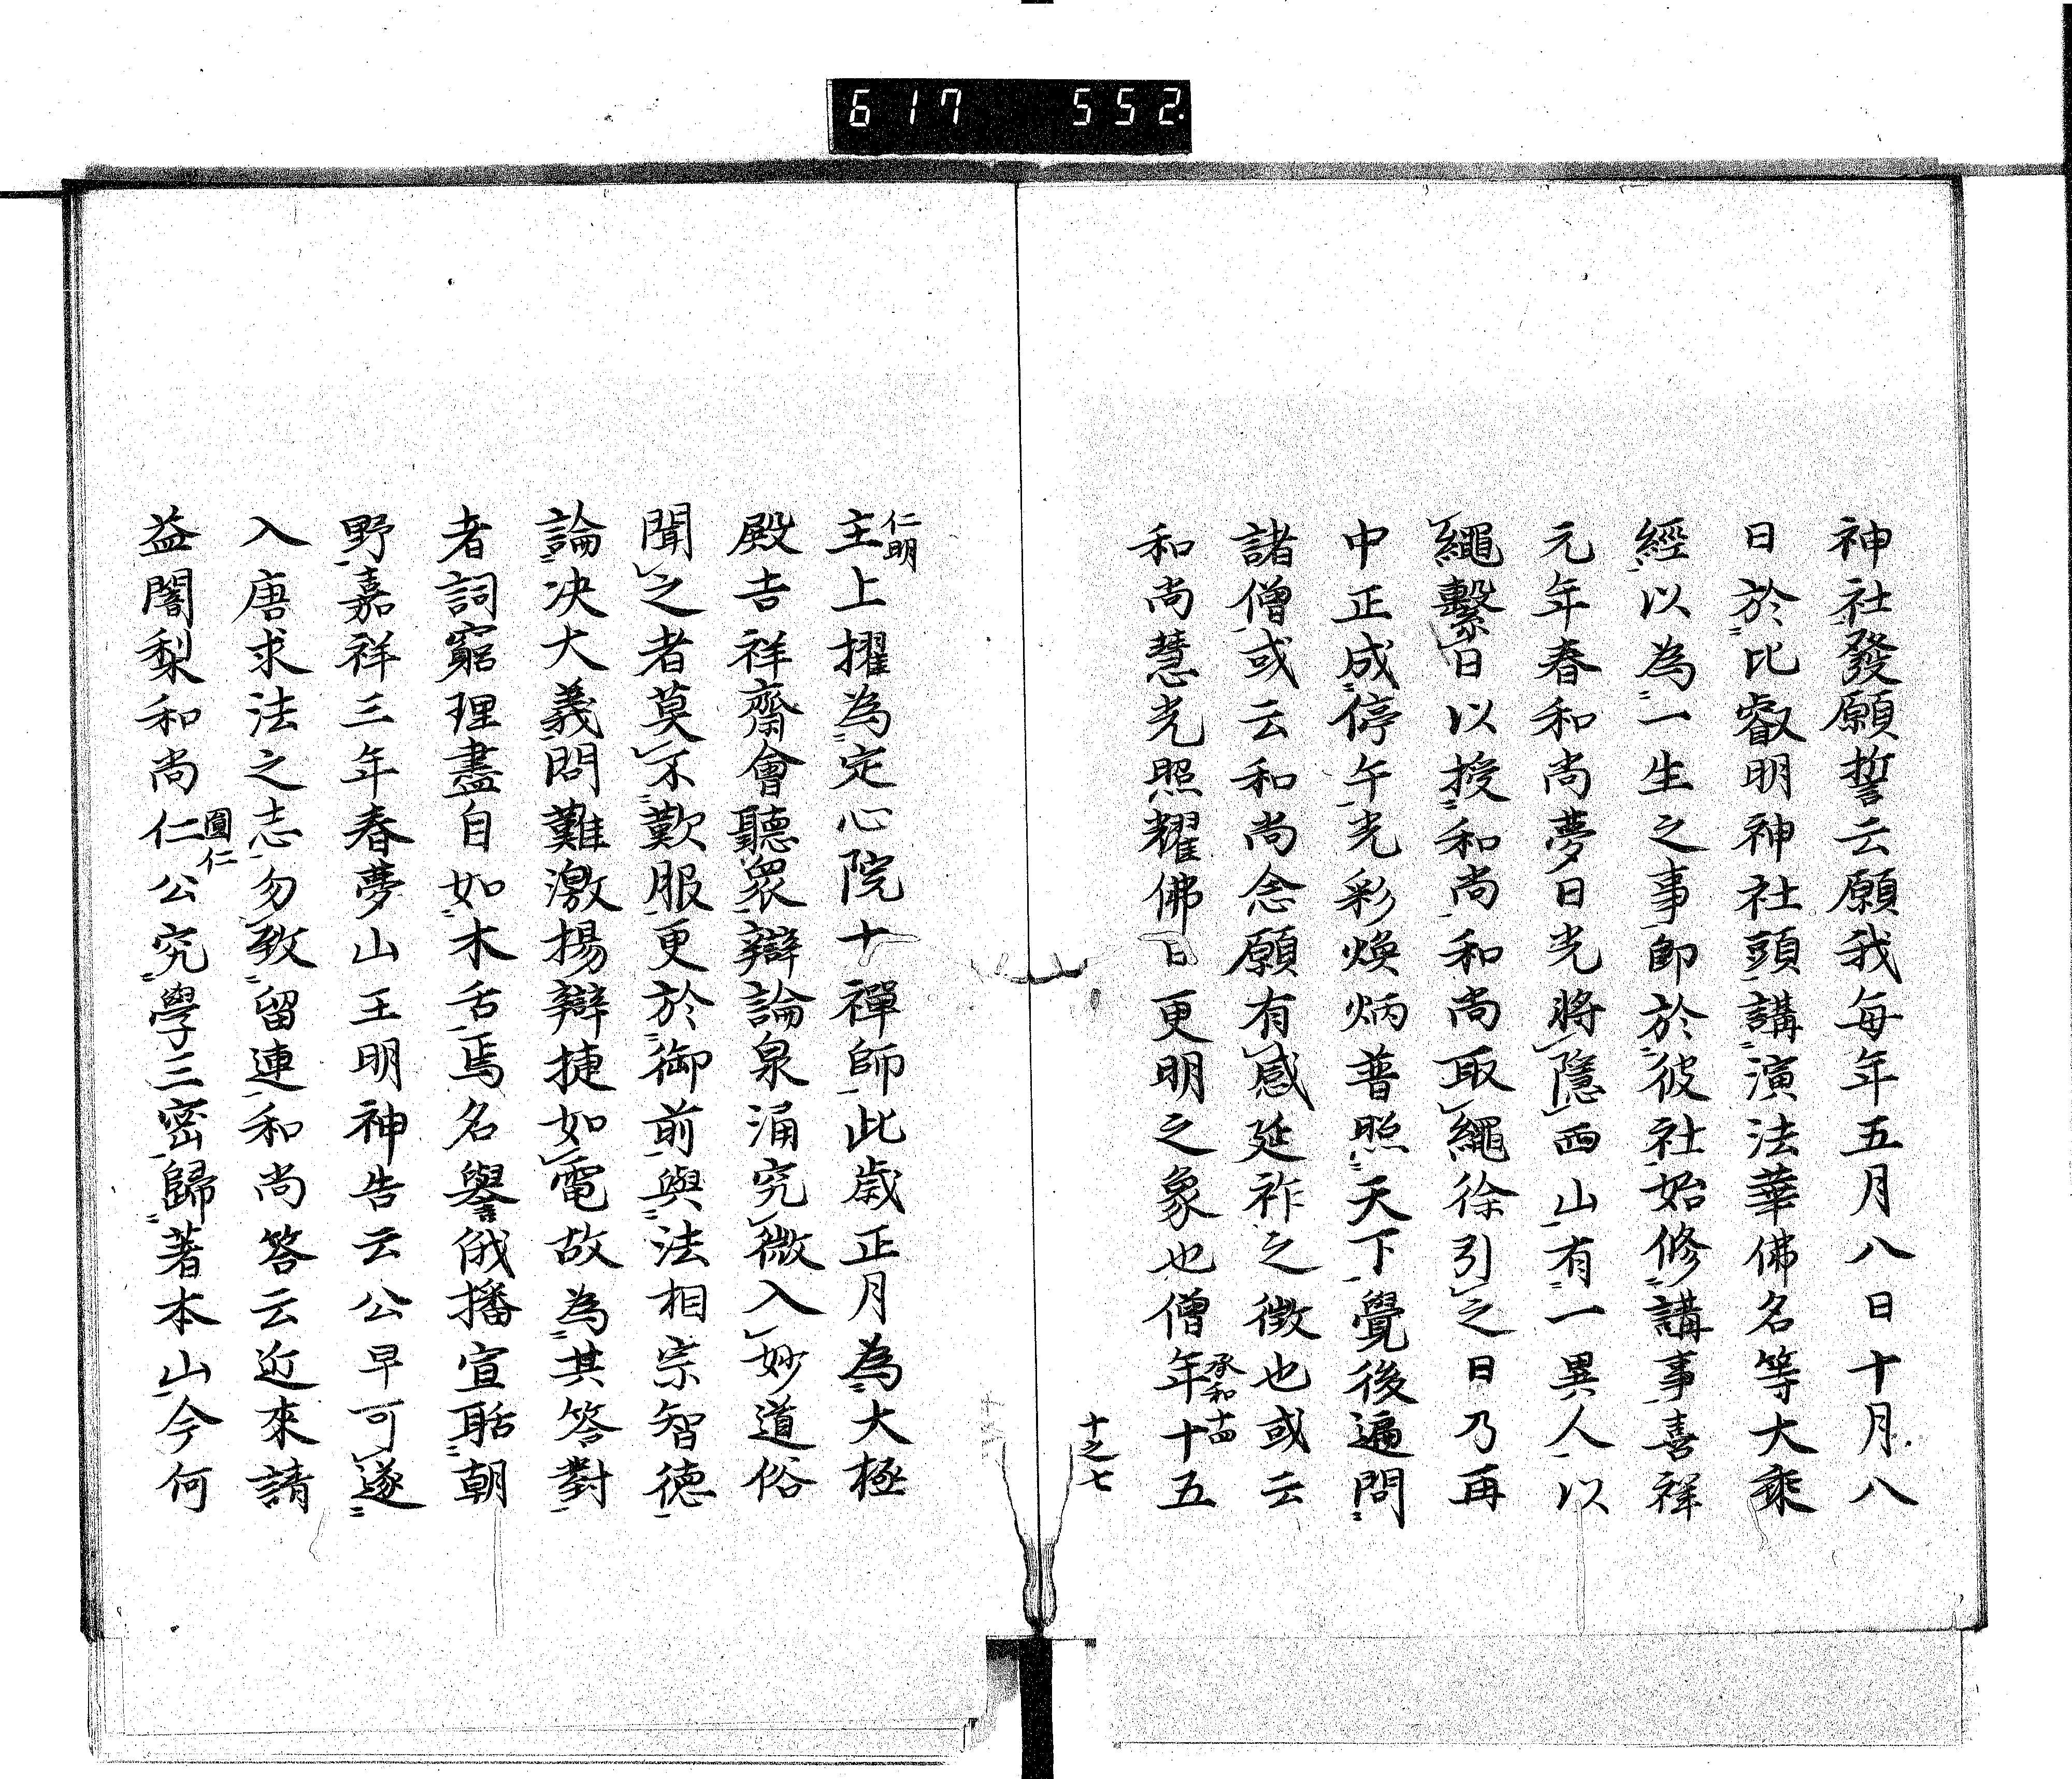 617 552
神社發願誓云願我每年五月八日十月八
日於比叡明神社頭講演法華佛名等大乘
經以為一生之事即於彼社始修講事喜祥
元年春和尚夢日光將隱西山有一異人以
繩繫日以授和尚和尚取繩徐引之日乃再
中正成停午光彩煥炳普照天下覺後遍問
諸僧或云和尚念願有感延祚之徵也或云
和尚慧光照耀佛日更明之象也僧年十五
承和十四
十之七
仁明
主上擢為定心院十禪師此歲正月為大極
殿吉祥齋會聽眾辯論泉涌究微入妙道俗
聞之者莫不歎服更於御前與法相宗智德
論决大義問難激揚辯捷如電故為其答對
者詞窮理盡自如木舌焉名譽俄播宣聒朝
野嘉祥三年春夢山王明神告云公早可遂
入唐求法之志勿致留連和尚答云近來請
益闍梨和尚仁公究學三密歸著本山今何
圓仁